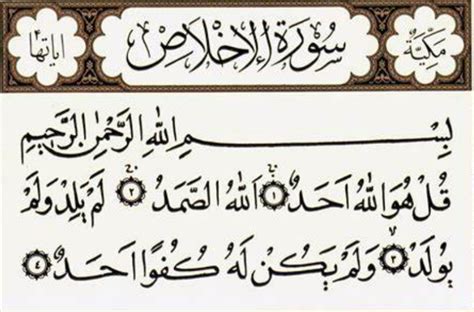 مكية سورة الإخلاص آياتها ٤
بِسْمِ اللهِ الرَّحْمٰنِ الرَّحِيْمِ
قُلْ هُوَ اللهُ اَحَدٌ ۝١ اَللهُ الصَّمَدُ ۝٢ لَمْ يَلِدْ وَلَمْ
يُوْلَدْ ۝٣ وَلَمْ يَكُنْ لَهُ كُفُوًا اَحَدٌ ۝٤